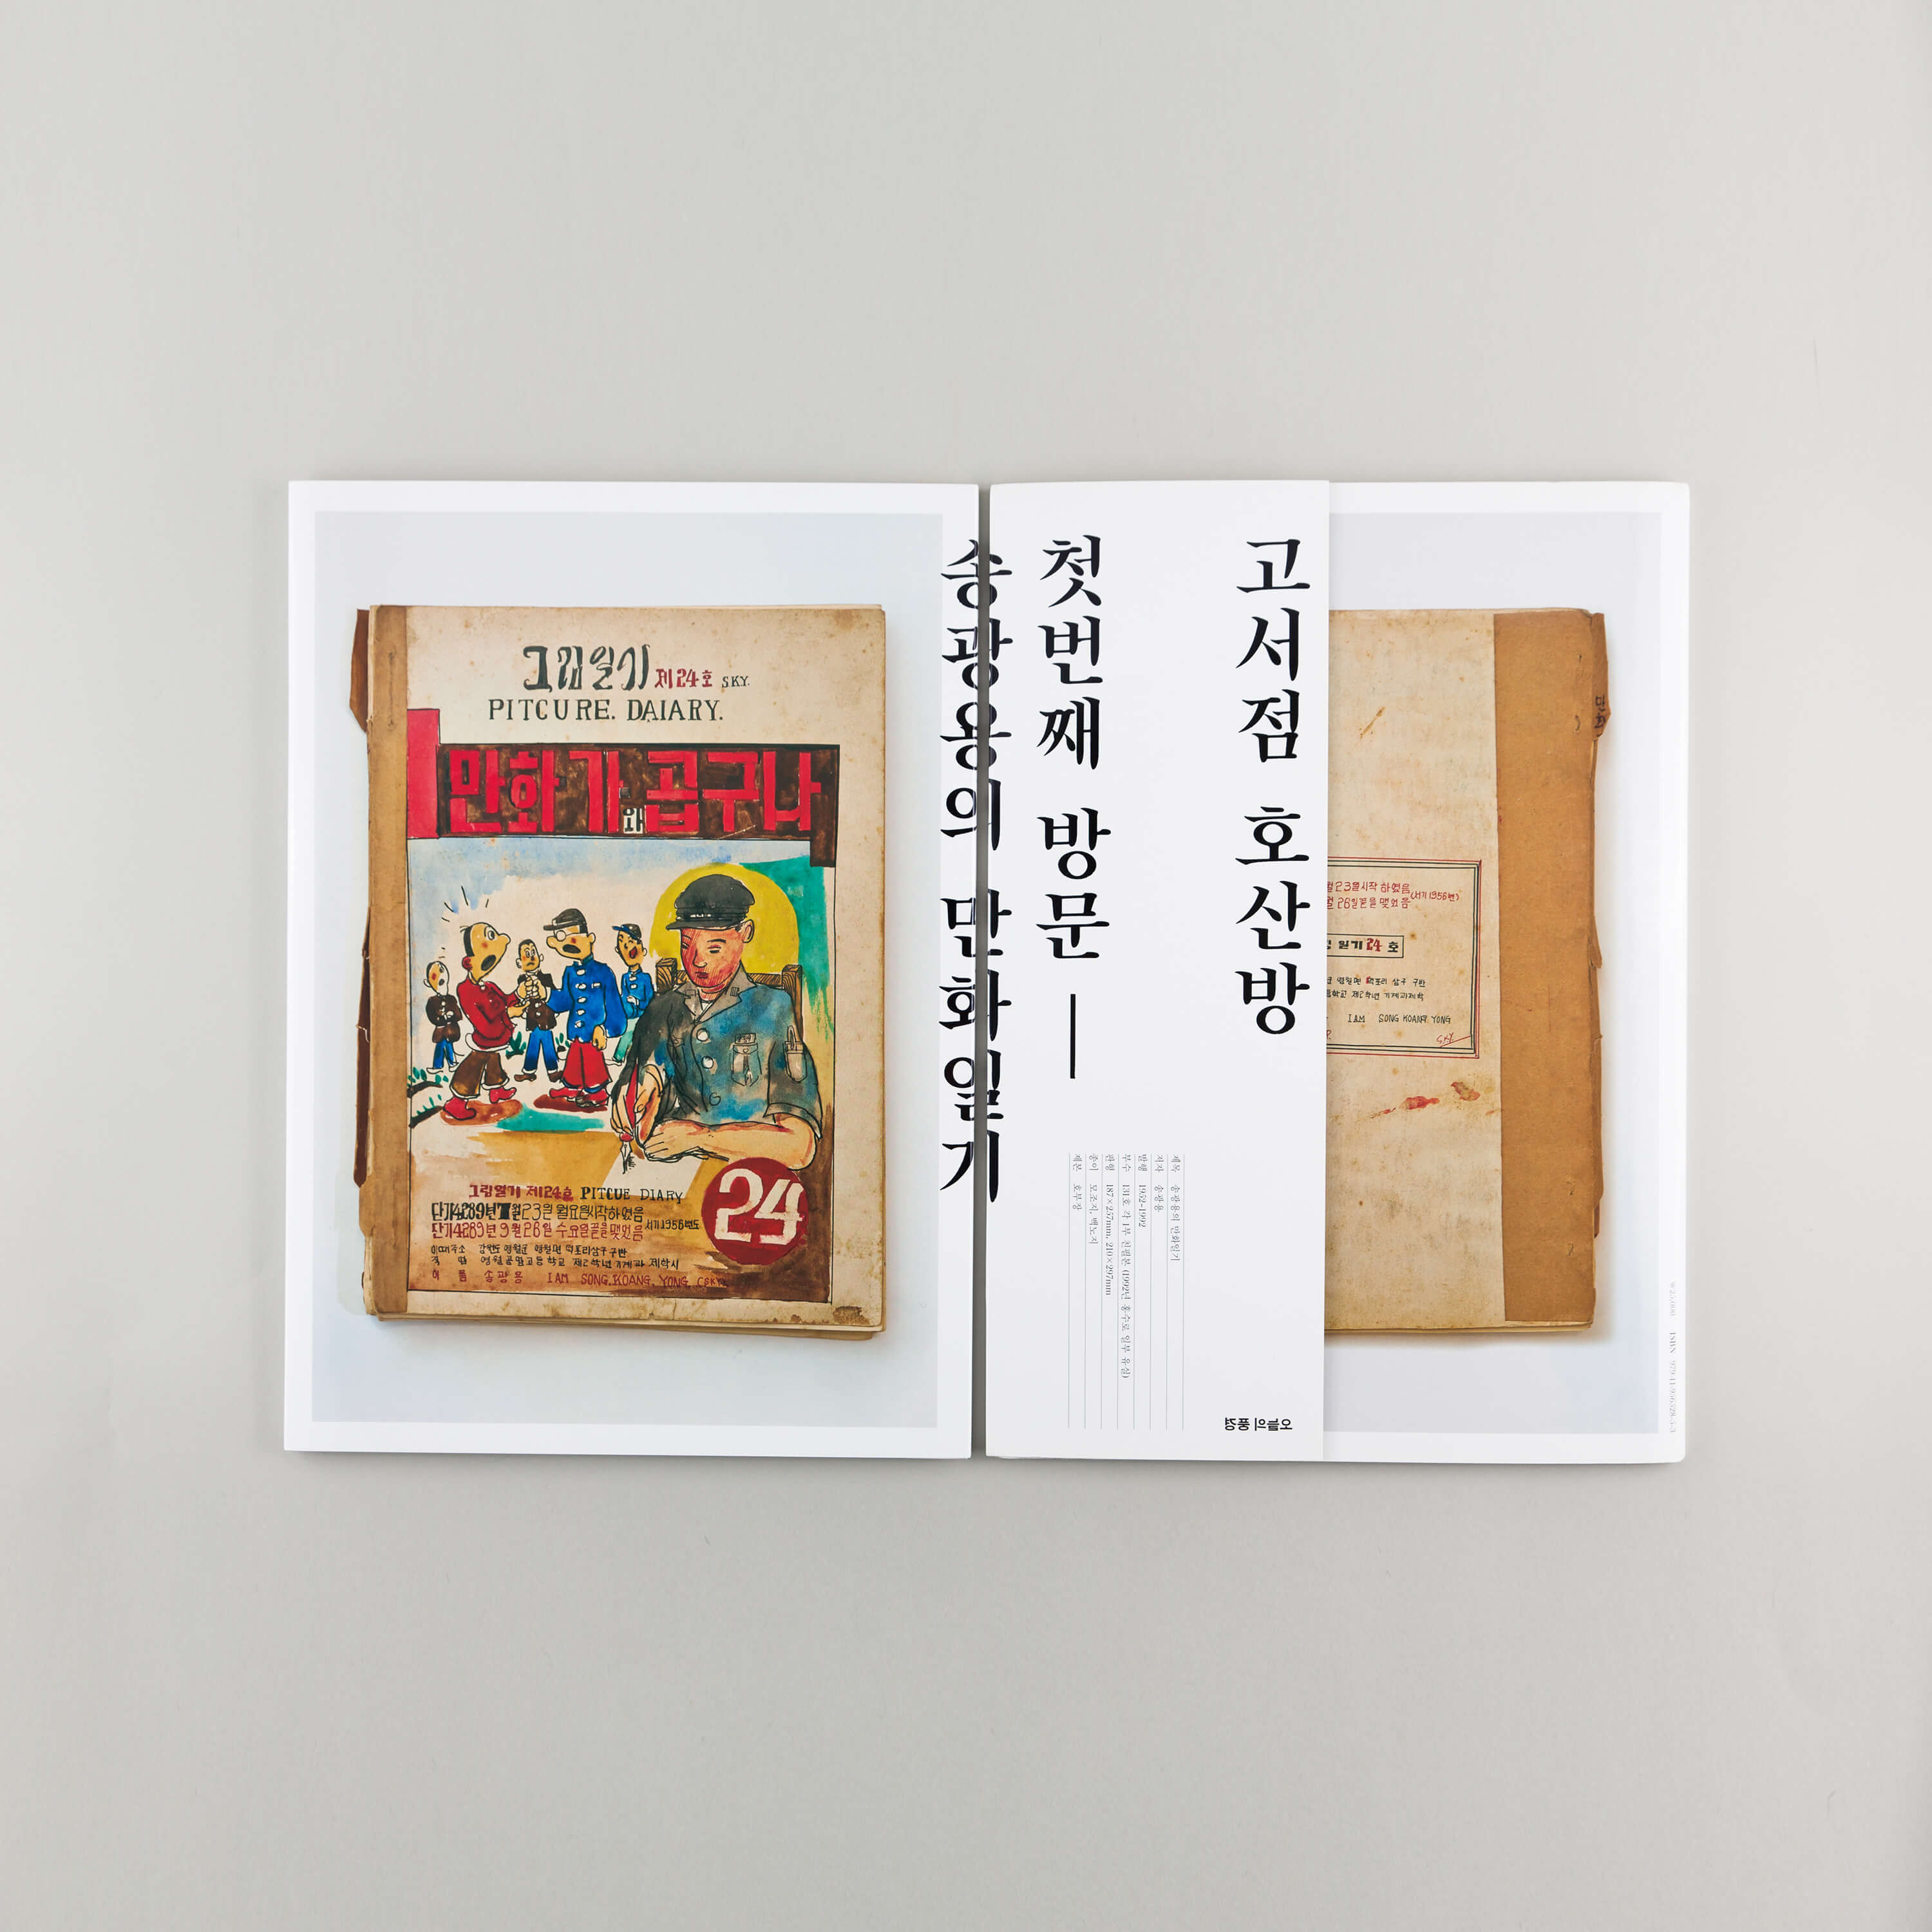 그림일기 제24호 S.K.Y.
PITCURE. DAIARY.
만화가와 곱구나
그림일기 제24호 PITCUE DIARY
단기4289년 7월 23일 월요일시작하였음
단기4289년 9월 26일 수요일끝을맺었음 서기1956년도
이때주소 강원도 영월군 영월면 덕포리삼구 구반
직업 영월공업고등학교 제2학년 기계과 재학시
이름 송광용 I AM SONG. KOANG. YONG. (S.K.Y.)
24
고서점 호산방
첫번째 방문 —
송광용의 만화일기
제목 송광용의 만화일기
저자 송광용
발행 1952-1992
부수 131호 각 1부 친필본 (1992년 홍수로 일부 유실)
판형 187×257mm, 210×297mm
종이 모조지, 백노지
제본 호부장
오늘의 풍경
월23일시작 하였음
월 26일끝을 맺었음 (서기 1956년)
일기 24 호
영월면 덕포리 삼구 구반
등학교 제2학년 기계과재학
I AM SONG KOANG YONG
S.K.Y.
만화